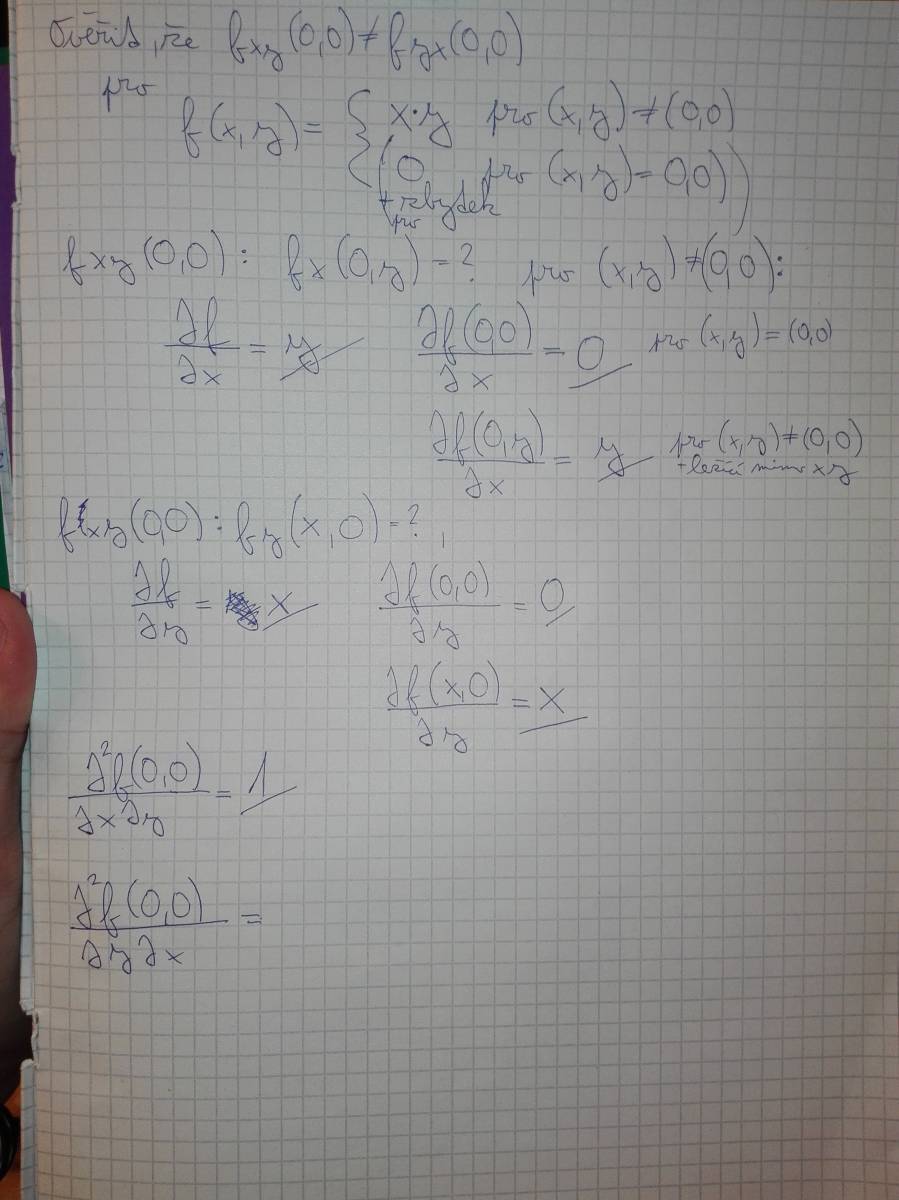 Ověřit, že f_xy(0,0) ≠ f_yx(0,0)
pro
f(x,y) = { x·y pro (x,y) ≠ (0,0)
(0 pro (x,y) = 0,0))
+ zbytek
pro
f_xy(0,0): f_x(0,y) = ? pro (x,y) ≠ (0,0):
∂f/∂x = y ∂f(0,0)/∂x = 0 pro (x,y) = (0,0)
∂f(0,y)/∂x = y pro (x,y) ≠ (0,0)
+ ležící mimo xy
f_xy(0,0): f_y(x,0) = ?,
∂f/∂y = x ∂f(0,0)/∂y = 0
∂f(x,0)/∂y = x
∂²f(0,0)/∂x∂y = 1
∂²f(0,0)/∂y∂x =